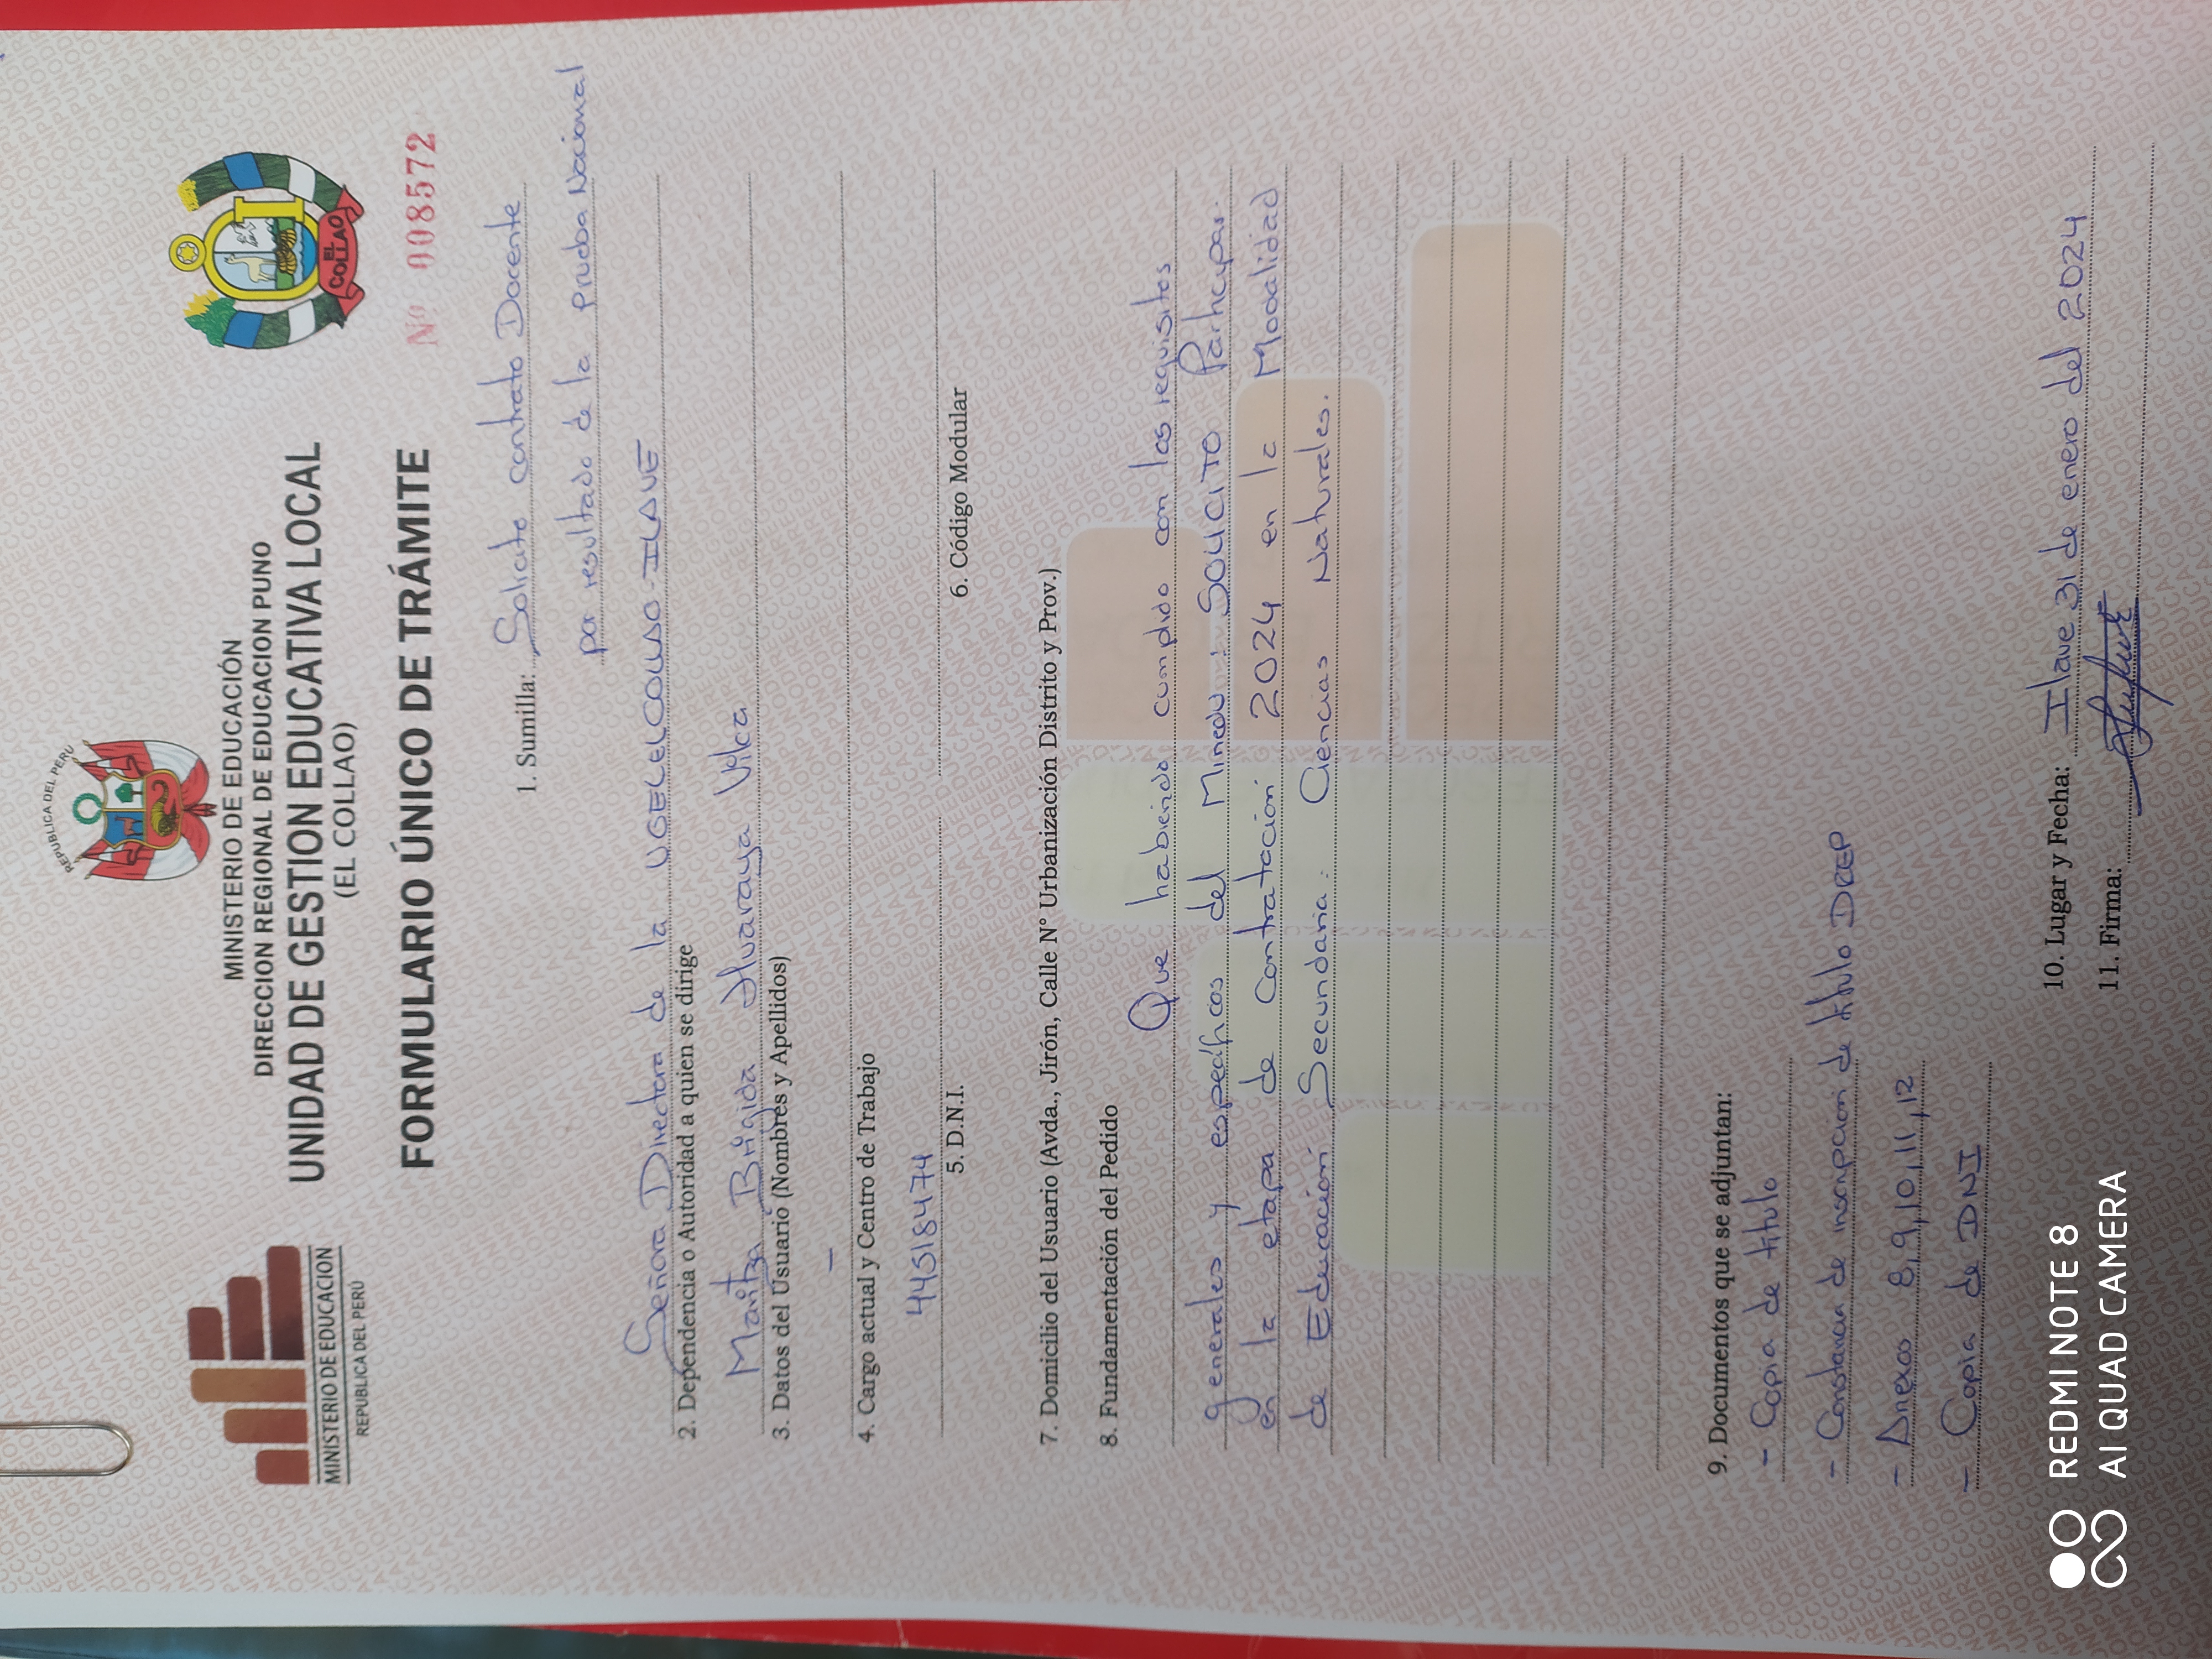 REPUBLICA DEL PERU
MINISTERIO DE EDUCACION
REPUBLICA DEL PERÚ
MINISTERIO DE EDUCACIÓN
DIRECCION REGIONAL DE EDUCACION PUNO
UNIDAD DE GESTION EDUCATIVA LOCAL
(EL COLLAO)
EL COLLAO
FORMULARIO ÚNICO DE TRÁMITE
Nº 008572
1. Sumilla: Solicito contrato Docente
por resultado de la prueba Nacional
Señora Directora de la UGEL COLLAO-ILAVE
2. Dependencia o Autoridad a quien se dirige
Maritza Brigida Huaraya Vilca
3. Datos del Usuario (Nombres y Apellidos)
-
4. Cargo actual y Centro de Trabajo
44518474
5. D.N.I.
6. Código Modular
7. Domicilio del Usuario (Avda., Jirón, Calle N° Urbanización Distrito y Prov.)
8. Fundamentación del Pedido
Que habiendo cumplido con los requisitos
generales y específicos del Minedu: SOLICITO Participar
en la etapa de contratación 2024 en la Modalidad
de Educación Secundaria: Ciencias Naturales.
9. Documentos que se adjuntan:
- Copia de titulo
- Constancia de inscripcion de titulo DREP
- Anexos 8,9,10,11,12
- Copia de DNI
10. Lugar y Fecha: Ilave 31 de enero del 2024
11. Firma:
REDMI NOTE 8
AI QUAD CAMERA